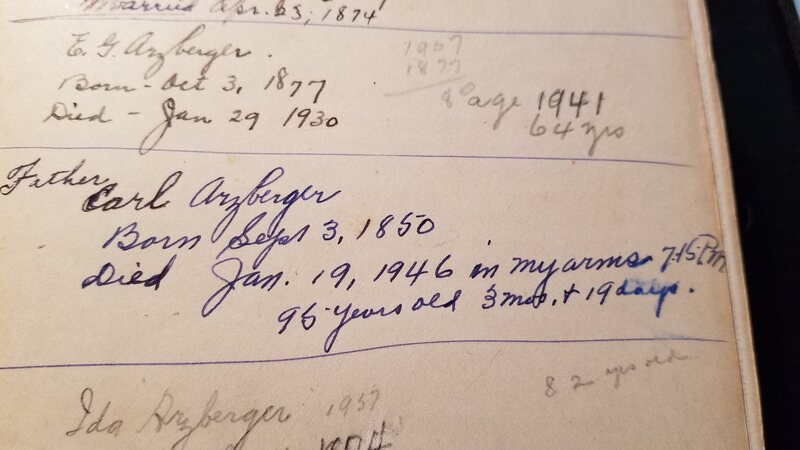 Married Apr. 23, 1874
E. G. Arzberger.
Born - Oct 3, 1877
Died - Jan 29 1930
1957
1877
8 age 1941
64 yrs
Father
Carl Arzberger
Born Sept 3, 1850
Died Jan. 19, 1946 in my arms 7:15 Pm
95 years old 3 mos. + 19 days.
82 yrs old
Ida Arzberger 1957